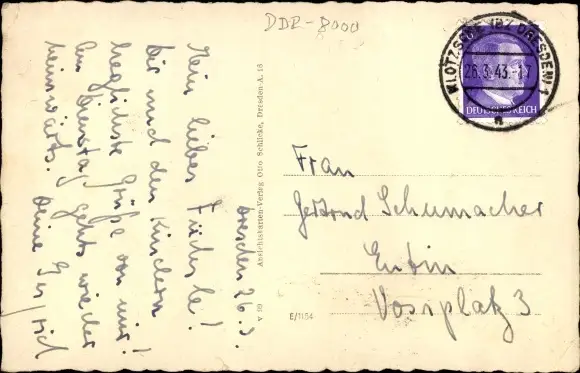 DDR-8000
KLOTZSCHE (BZ DRESDEN) 1
26.3.43.-17
a
DEUTSCHES REICH
Dresden 26.3.
Mein liebes Füchsle!
Dir und den Kindern
herzlichste Grüße von mir!
Am Dienstag geht's wieder
heimwärts.
Deine
Ansichtskarten-Verlag Otto Schlicke, Dresden-A. 16
V 99
E/1184
Frau
Gertrud Schumacher
Eutin
Vossplatz 3